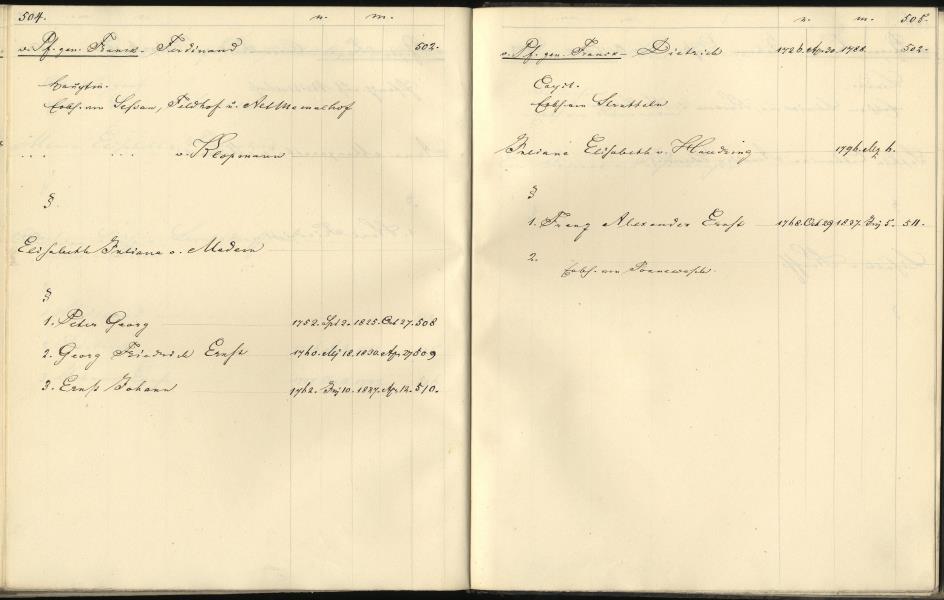 504. n. m.
v. Pf. gen. Franck - Ferdinand 502.
Hauptm.
Erbh. von Sessau, Feldhof u. Alt Memelhof
... ... v. Klopmann
§
Elisabeth Juliana v. Medem
§
1. Peter Georg 1752. Spt 2. 1825. Oct 27. 508
2. Georg Friedrich Ernst 1760. Mj 18. 1830. Ap. 27 509
3. Ernst Johann 1762. Inj 10. 1837. Ap. 12. 510.
n. m. 505.
v. Pf. gen. Franck - Dietrich 1726. Ap. 30. 1788. 502.
Capit.
Erbh. von Stratteln
Juliana Elisabeth v. Haudring 1796. Mz 6.
§
1. Franz Alexander Ernst 1768. Oct 29 1837. Inj 5. 511.
2.
Erbh. von